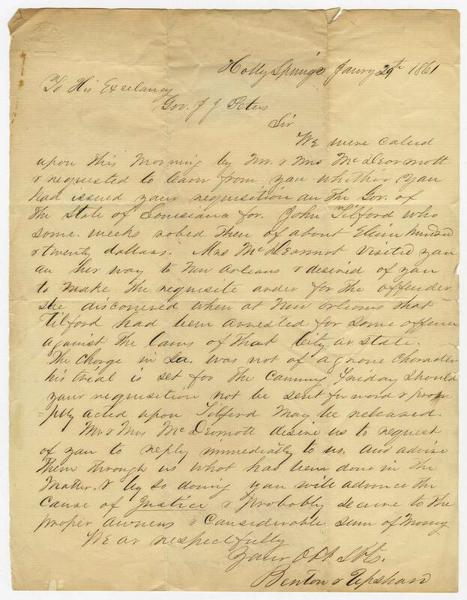 Holly Springs Janry 29th 1861
To His Exselancy
Gov. J J Petus
Sir
We were caled
upon this morning by Mr. & Mrs McDearmott
& requested to learn from you whether you
had issued your requisition on the Gov. of
the State of Louisiana for John Tilford who
some weeks robed them of about Eleven hundred
& twenty dollars. Mrs McDearmot visited you
on her way to New Orleans & desired of you
to make the requisite order for the offender
she discovered when at New Orleans that
Tilford had been arrested for some offence
against the laws of that City or State.
The charge in La. was not of a grave Charader
his trial is set for the coming Friday should
your requisition not be sent forward & prom
ptly acted upon Tilford may be released.
Mr & Mrs McDermott desire us to request
of you to reply immediatly to us and advise
them through us what has been done in the
matter. & by so doing you will advance the
Cause of Justice & Probably secure to the
proper owners a Considerable sum of money
We ar respectfully
Your Obt Svts.
Benton & Upshaw